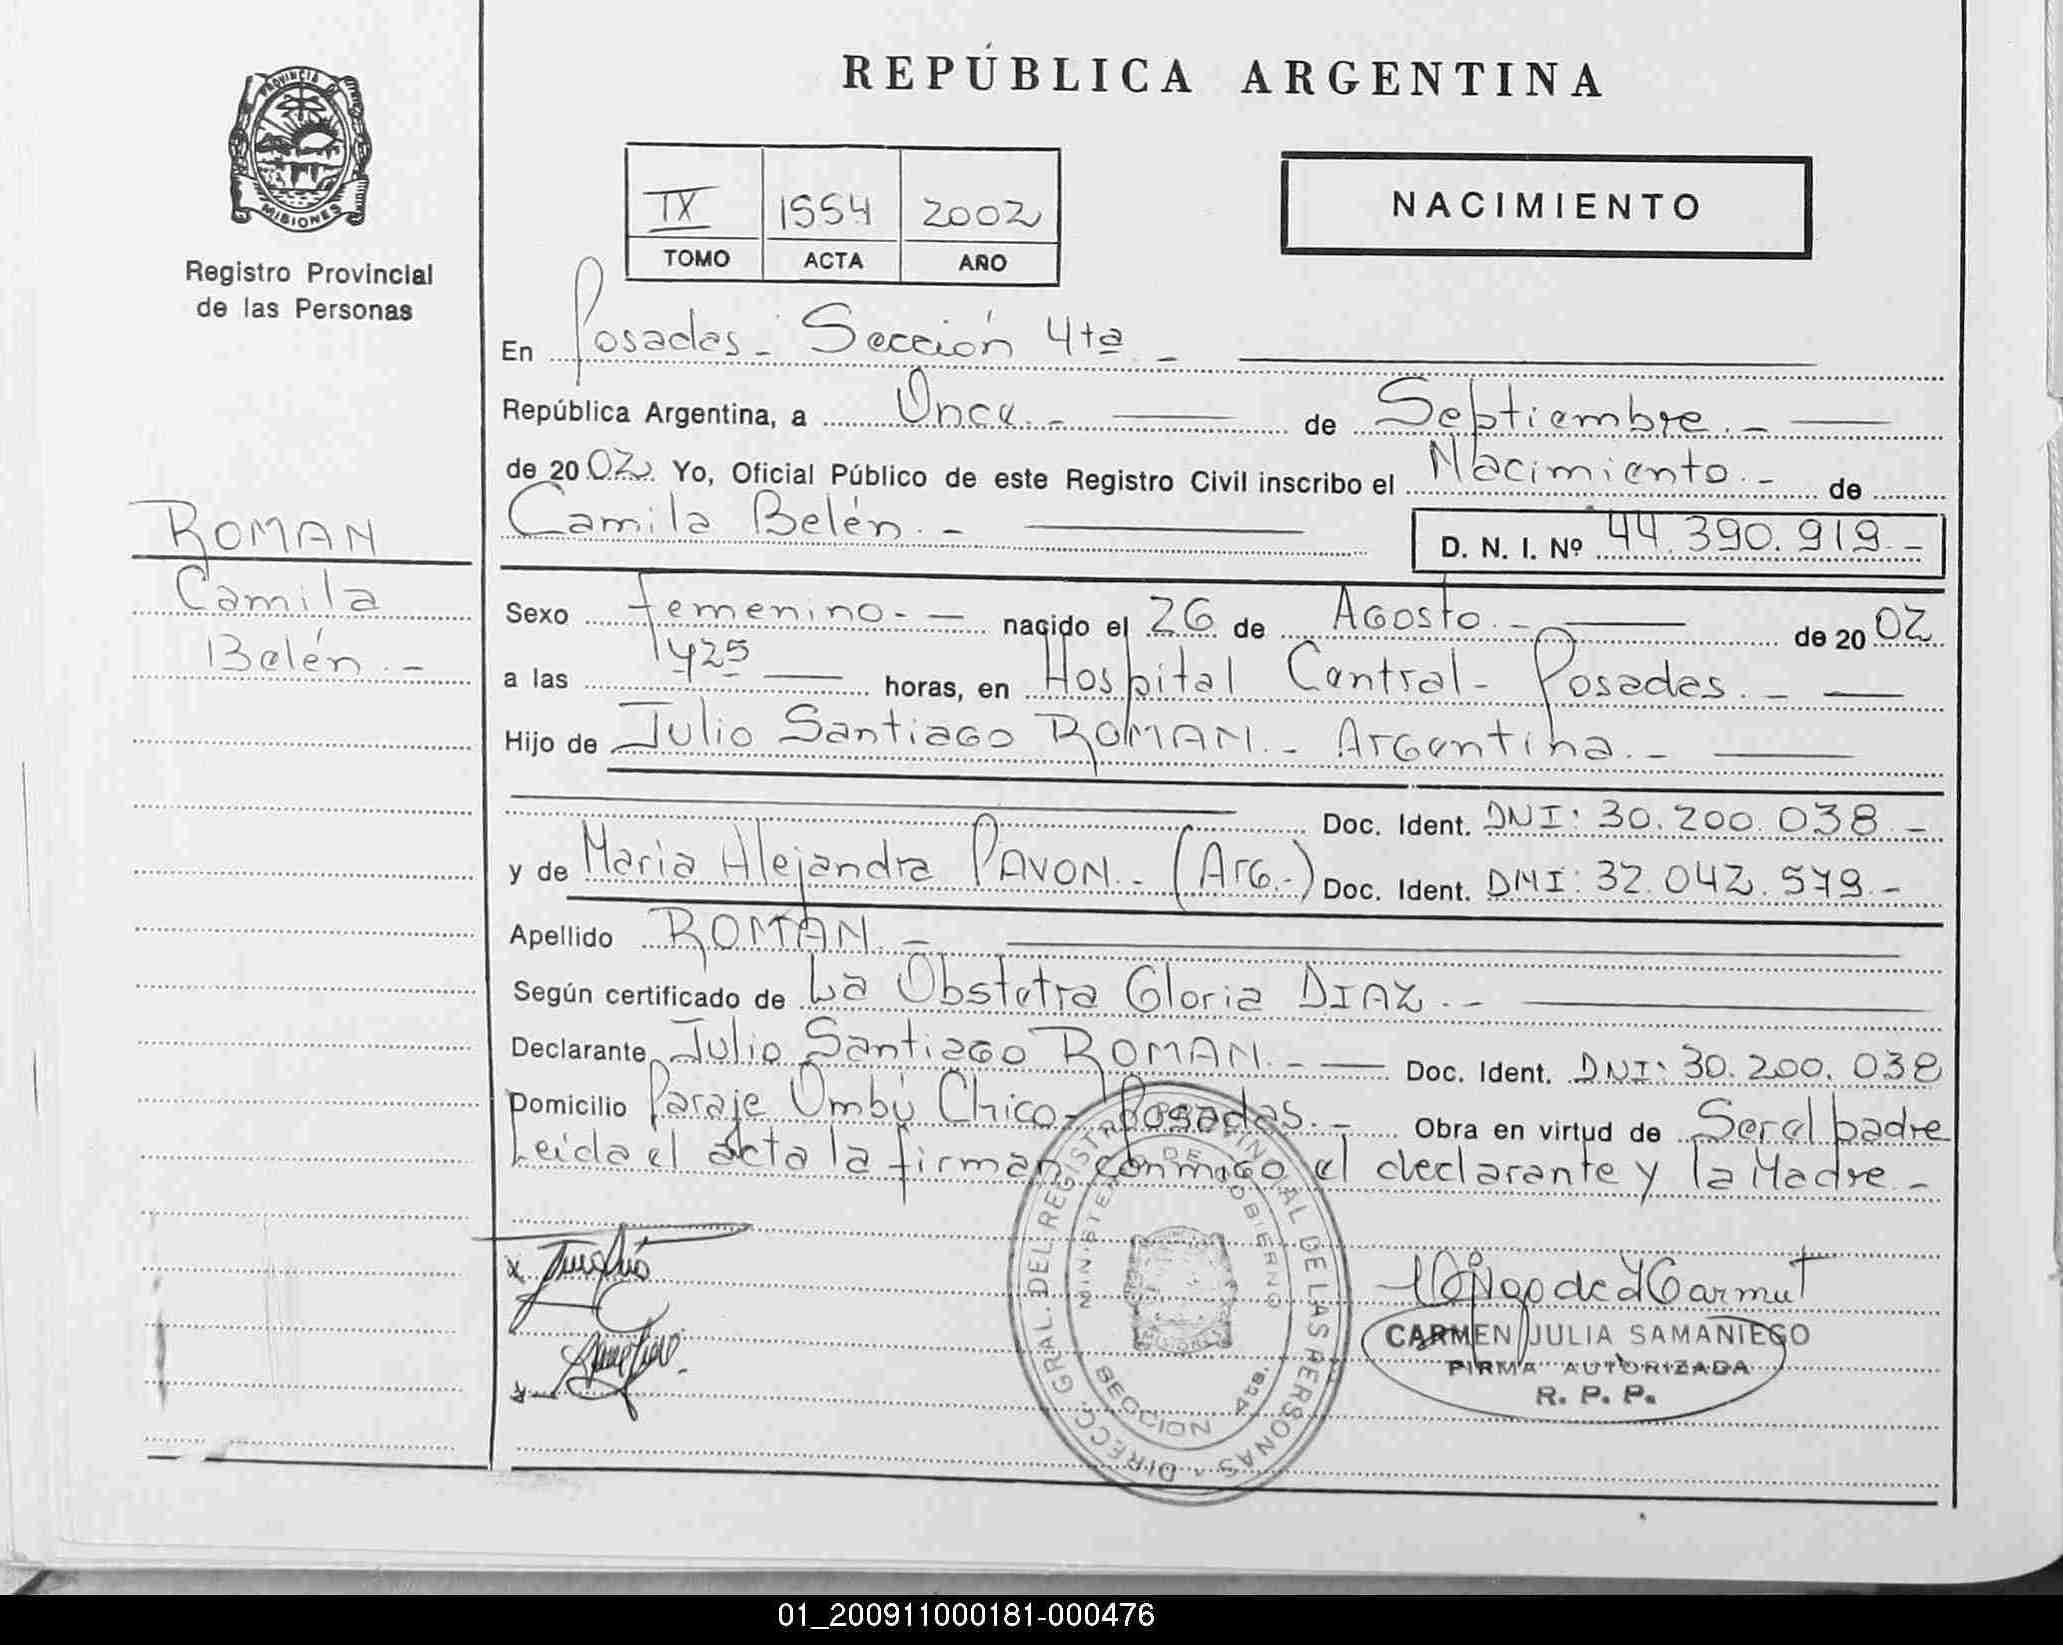 REPÚBLICA ARGENTINA
PROVINCIA DE MISIONES
Registro Provincial
de las Personas
IX 1554 2002
TOMO ACTA AÑO
NACIMIENTO
En Posadas - Sección 4ta. -
República Argentina, a Once. - de Septiembre. -
de 2002. Yo, Oficial Público de este Registro Civil inscribo el Nacimiento. - de
Camila Belén. - D. N. I. Nº 44.390.919. -
ROMAN
Camila
Belén. -
Sexo femenino. - nacido el 26 de Agosto. - de 2002
a las 1425 horas, en Hospital Central - Posadas. -
Hijo de Julio Santiago ROMAN. - Argentina. -
Doc. Ident. DNI: 30.200.038. -
y de Maria Alejandra PAVON. - (Arg.-) Doc. Ident. DNI: 32.042.579. -
Apellido ROMAN. -
Según certificado de La Obstetra Gloria DIAZ. -
Declarante Julio Santiago ROMAN. - Doc. Ident. DNI: 30.200.038
Domicilio Paraje Ombú Chico - Posadas. - Obra en virtud de Ser el padre
Leida el acta la firman conmigo el declarante y la Madre. -
DIRECC. GRAL. DEL REGISTRO PROVINCIAL DE LAS PERSONAS
MINISTERIO DE GOBIERNO
SECCION 4ta.
CARMEN JULIA SAMANIEGO
FIRMA AUTORIZADA
R. P. P.
01_200911000181-000476